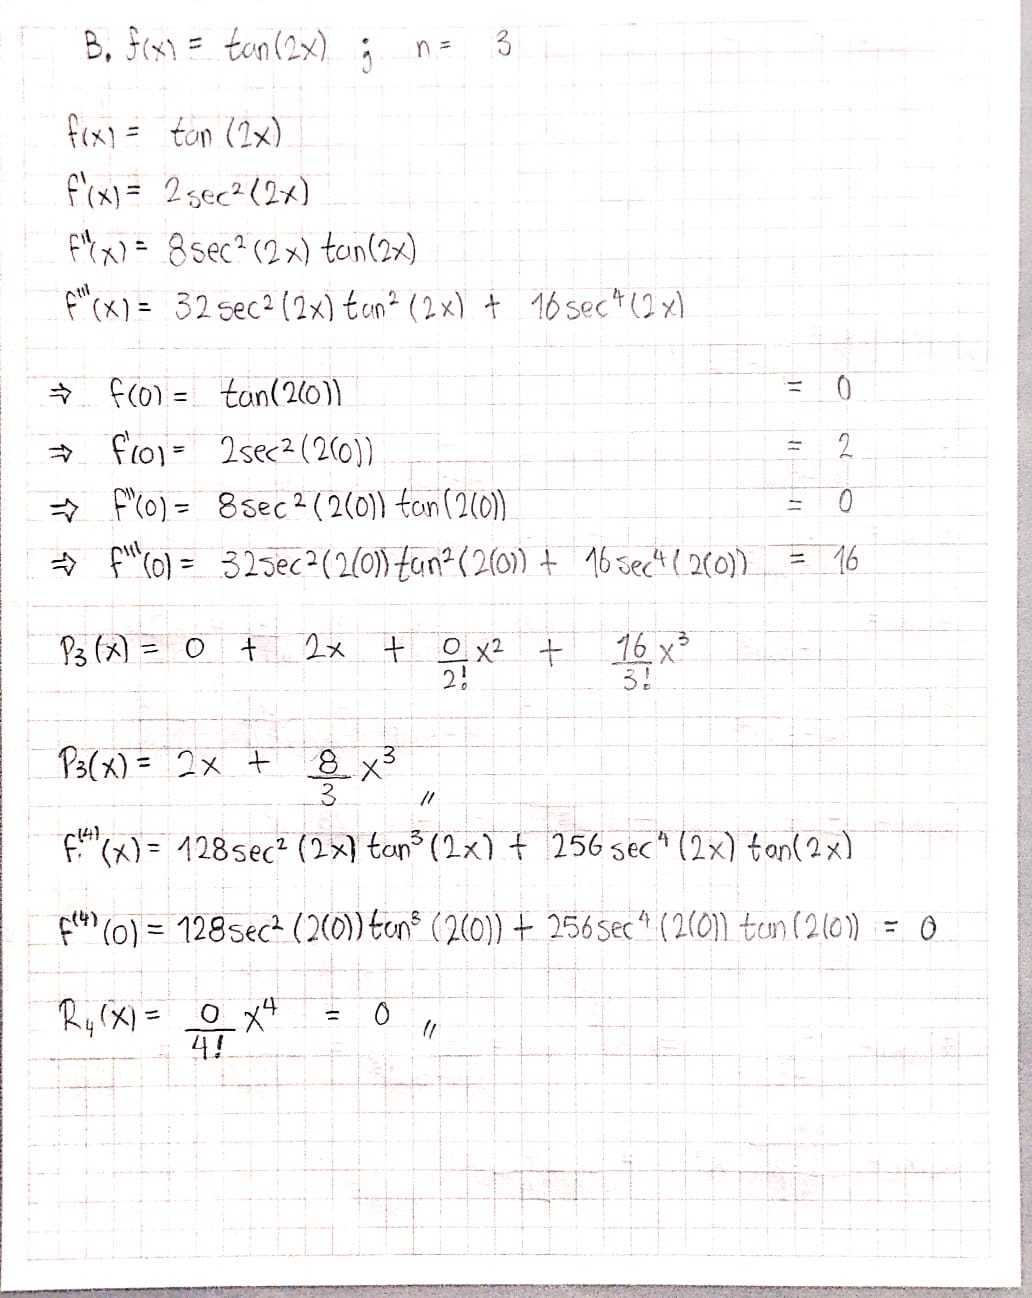 B. f(x) = tan(2x) ; n = 3
f(x) = tan (2x)
f'(x) = 2sec²(2x)
f''(x) = 8sec²(2x) tan(2x)
f'''(x) = 32sec²(2x) tan²(2x) + 16sec⁴(2x)
⇒ f(0) = tan(2(0)) = 0
⇒ f'(0) = 2sec²(2(0)) = 2
⇒ f''(0) = 8sec²(2(0)) tan(2(0)) = 0
⇒ f'''(0) = 32sec²(2(0)) tan²(2(0)) + 16sec⁴(2(0)) = 16
P₃(x) = 0 + 2x + 0/2! x² + 16/3! x³
P₃(x) = 2x + 8/3 x³ //
f⁽⁴⁾(x) = 128sec²(2x) tan³(2x) + 256sec⁴(2x) tan(2x)
f⁽⁴⁾(0) = 128sec²(2(0)) tan³(2(0)) + 256sec⁴(2(0)) tan(2(0)) = 0
R₄(x) = 0/4! x⁴ = 0 //